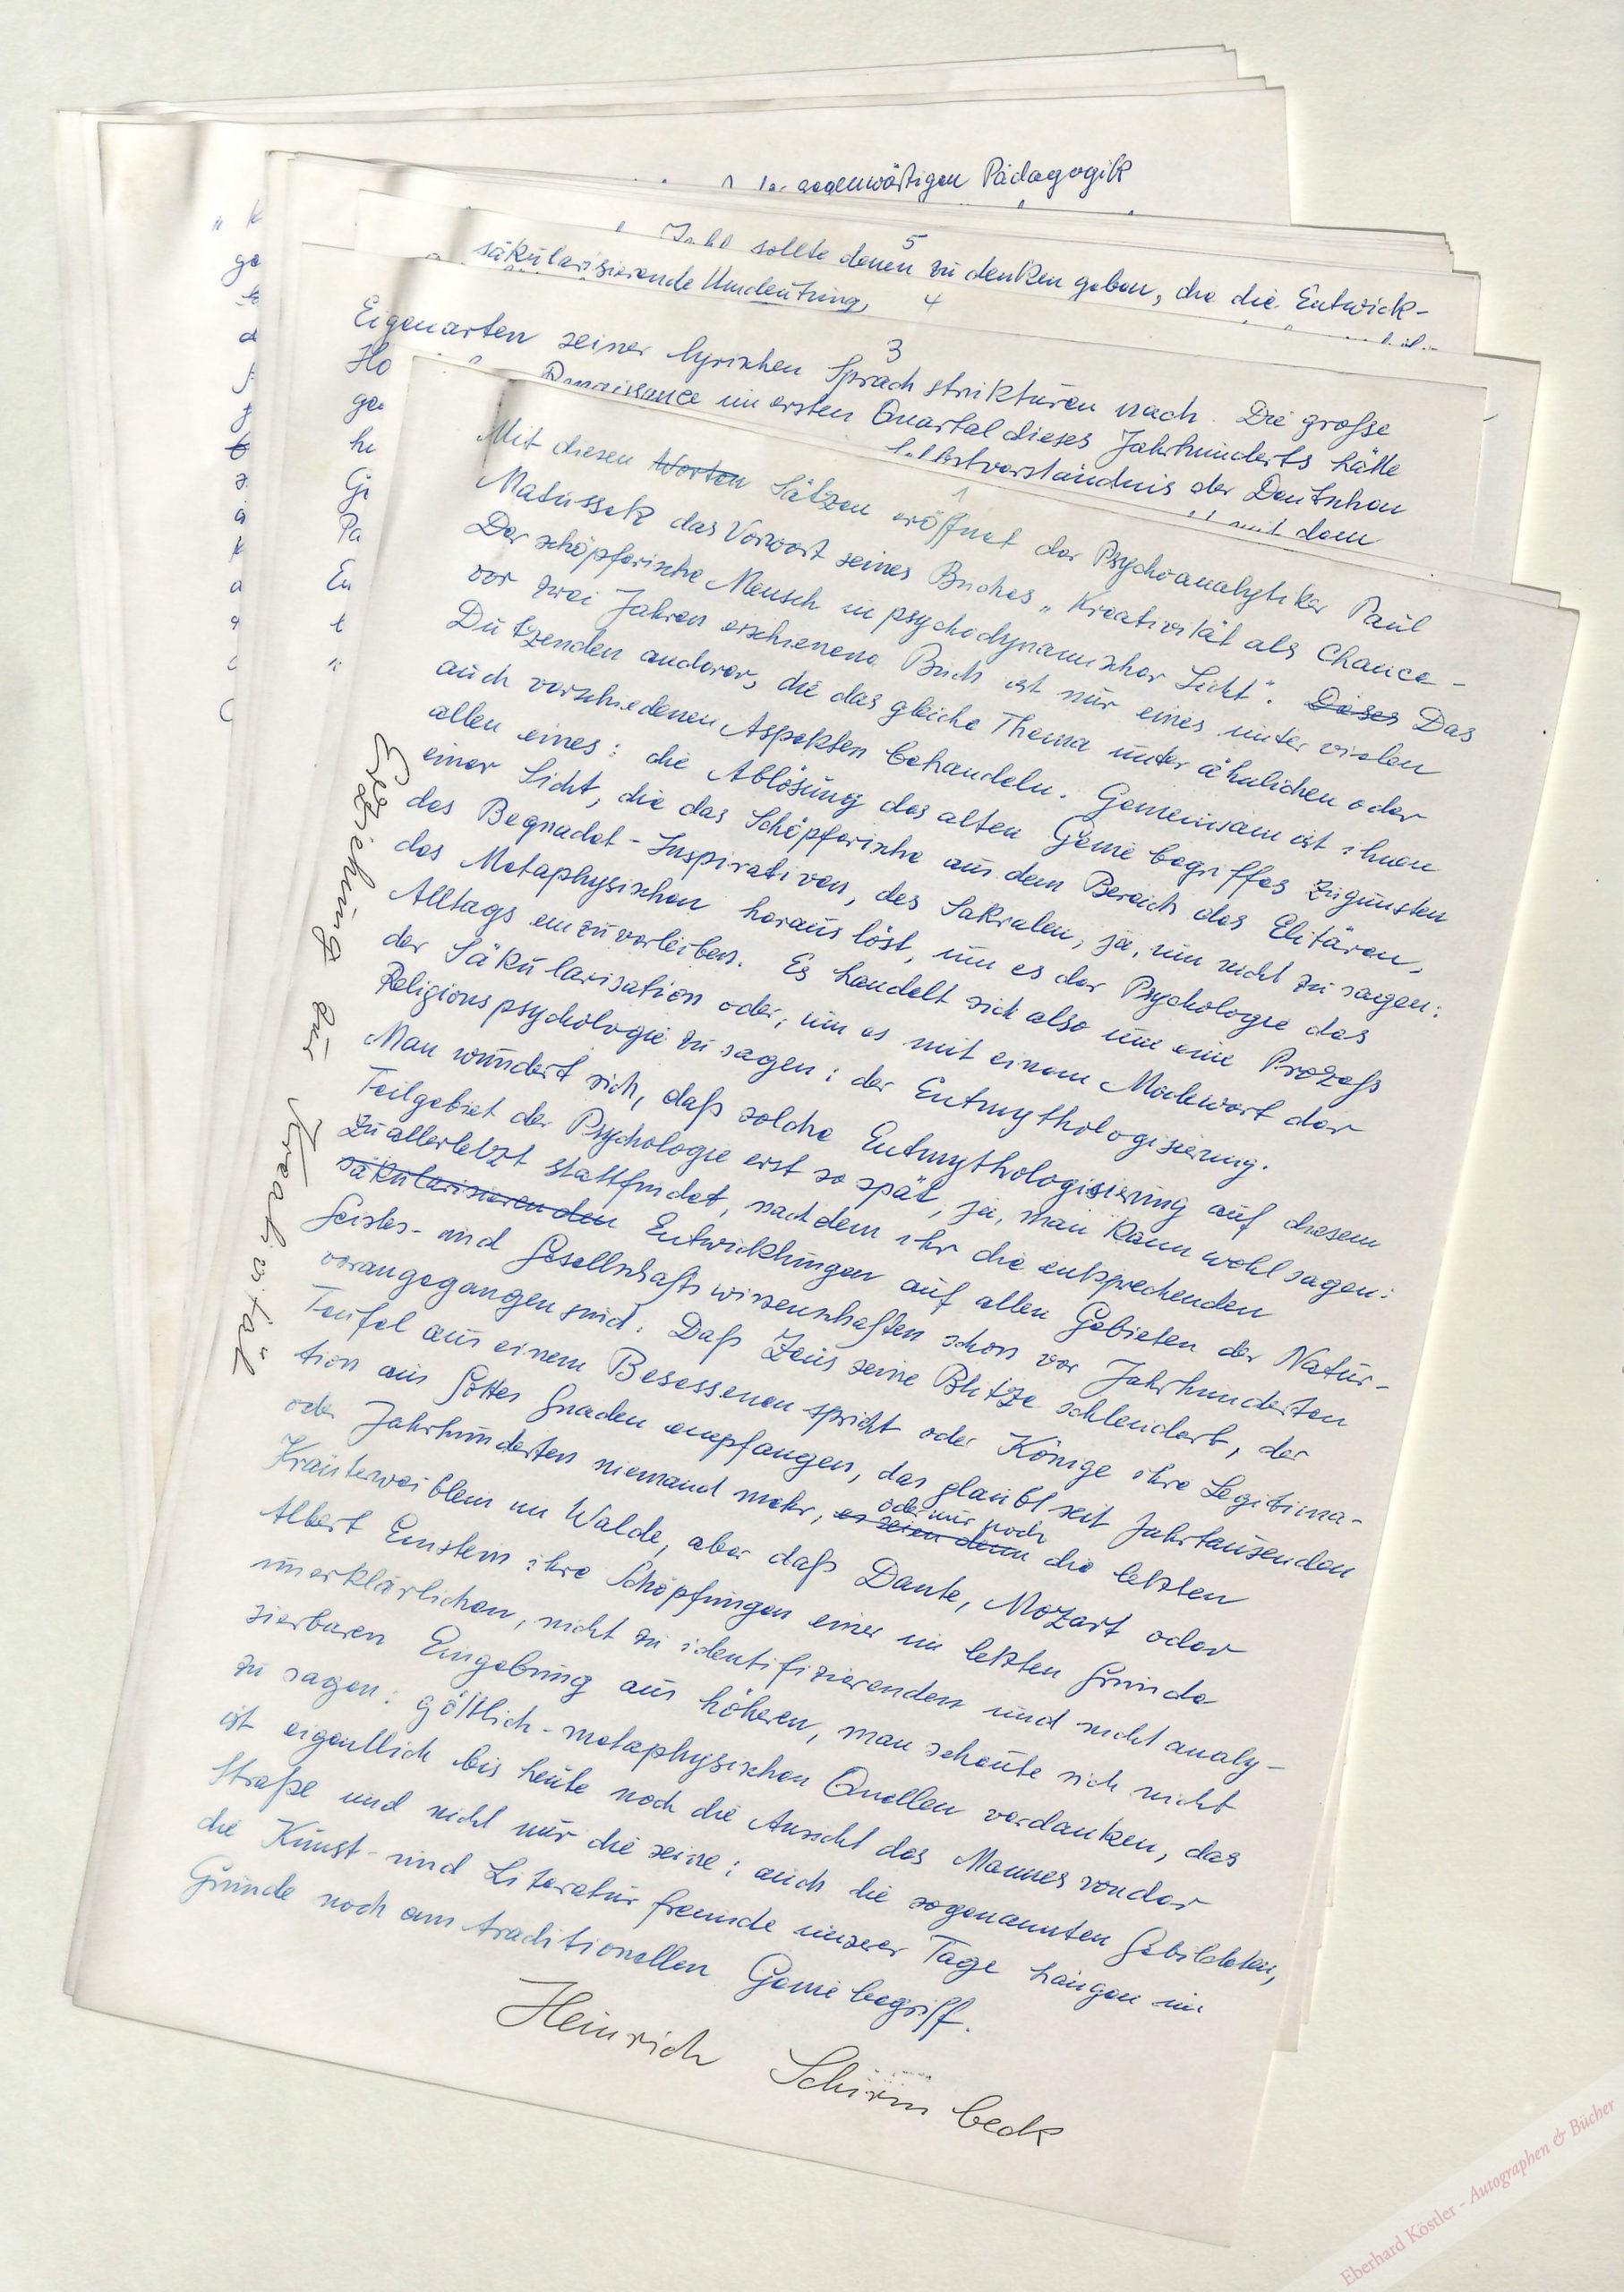 gegenwärtigen Pädagogik
5
sollte denen zu denken geben, die die Entwick-
4
säkularisierende Umdeutung,
3
Eigenarten seiner lyrischen Sprachstrukturen nach. Die große
Renaissance im ersten Quartal dieses Jahrhunderts hätte
Selbstverständnis der Deutschen
mit dem
1
Mit diesen Worten Sätzen eröffnet der Psychoanalytiker Paul
Matussek das Vorwort seines Buches „Kreativität als Chance -
Der schöpferische Mensch in psychodynamischer Sicht“. Dieses Das
vor zwei Jahren erschienene Buch ist nur eines unter vielen
Dutzenden anderer, die das gleiche Thema unter ähnlichen oder
auch verschiedenen Aspekten behandeln. Gemeinsam ist ihnen
allen eines: die Ablösung des alten Geniebegriffes zugunsten
einer Sicht, die das Schöpferische aus dem Bereich des Elitären,
des Begnadet-Inspirativen, des Sakralen, ja, um nicht zu sagen:
des Metaphysischen heraus löst, um es der Psychologie des
Alltags einzuverleiben. Es handelt sich also um eine Prozeß
der Säkularisation oder, um es mit einem Modewort der
Religionspsychologie zu sagen: der Entmythologisierung.
Man wundert sich, daß solche Entmythologisierung auf diesem
Teilgebiet der Psychologie erst so spät, ja, man kann wohl sagen:
zuallerletzt stattfindet, nachdem ihr die entsprechenden
säkularisierenden Entwicklungen auf allen Gebieten der Natur-
Geistes- und Gesellschaftswissenschaften schon vor Jahrhunderten
vorangegangen sind. Daß Zeus seine Blitze schleudert, der
Teufel aus einem Besessenen spricht oder Könige ihre Legitima-
tion aus Gottes Gnaden empfangen, das glaubt seit Jahrtausenden
oder Jahrhunderten niemand mehr, es seien denn oder nur noch die letzten
Kräuterweiblein im Walde, aber daß Dante, Mozart oder
Albert Einstein ihre Schöpfungen einer im letzten Grunde
unerklärlichen, nicht zu identifizierenden und nicht analy-
sierbaren Eingebung aus höheren, man scheute sich nicht
zu sagen: göttlich-metaphysischen Quellen verdanken, das
ist eigentlich bis heute noch die Ansicht des Mannes von der
Straße und nicht nur die seine: auch die sogenannten Gebildeten,
die Kunst- und Literaturfreunde unserer Tage hängen im
Grunde noch am traditionellen Geniebegriff.
Heinrich Schirmbeck
Erziehung zur Kreativität
Eberhard Köstler - Autographen & Bücher